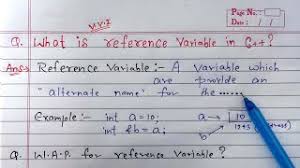 Page No.:
Date: / /
V.V.I
Q. What is reference Variable in C++?
Ans→ Reference Variable :- A Variable which
are provide an
"alternate name" for the ......
Example :- int a=10; a 10
int &b = a; b
Q. W.A.P. for reference variable?